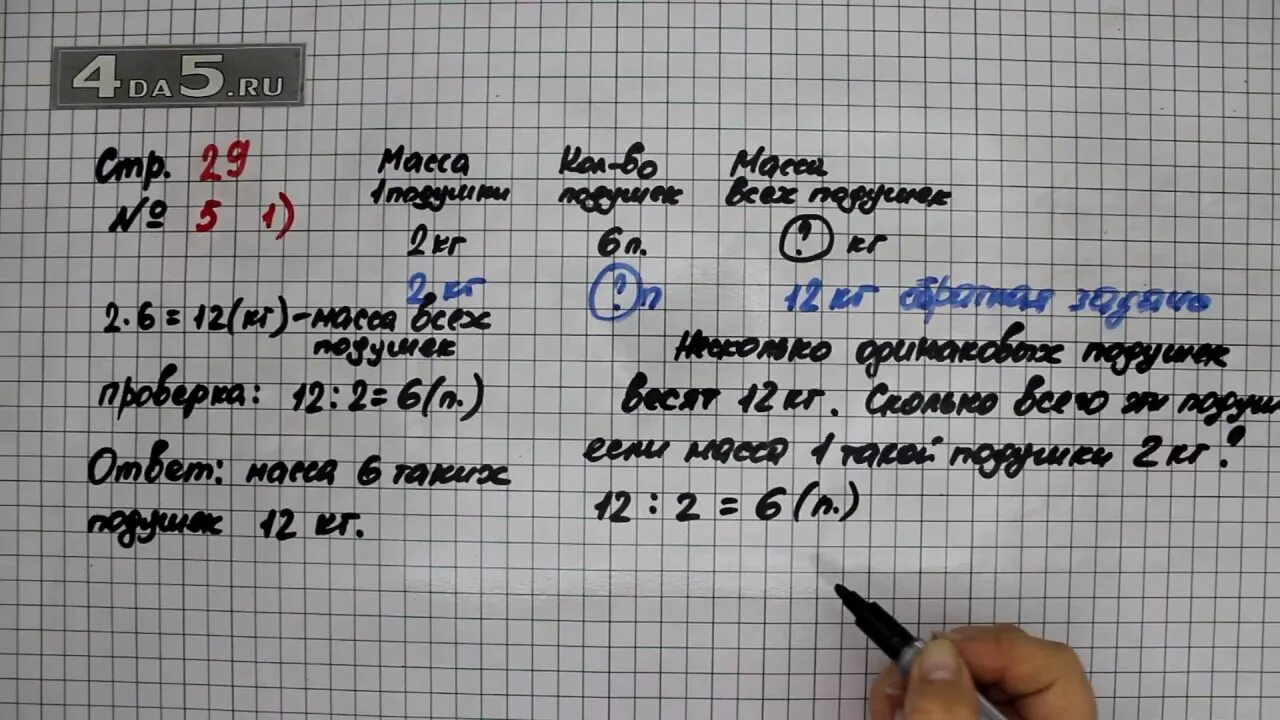 4DA5.RU
Стр. 29
№ 5 1)
Масса Кол-во Масса
1 подушки подушек всех подушек
2 кг 6 п. ? кг
2 кг ? п 12 кг обратная задача
2·6=12(кг)-масса всех
подушек
проверка: 12:2=6(п.)
Ответ: масса 6 таких
подушек 12 кг.
Несколько одинаковых подушек
весят 12 кг. Сколько всего эти
если масса 1 такой подушки 2 кг?
12:2=6(п.)